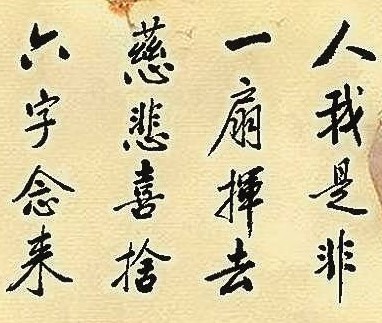 人我是非
一扇揮去
慈悲喜捨
六字念来